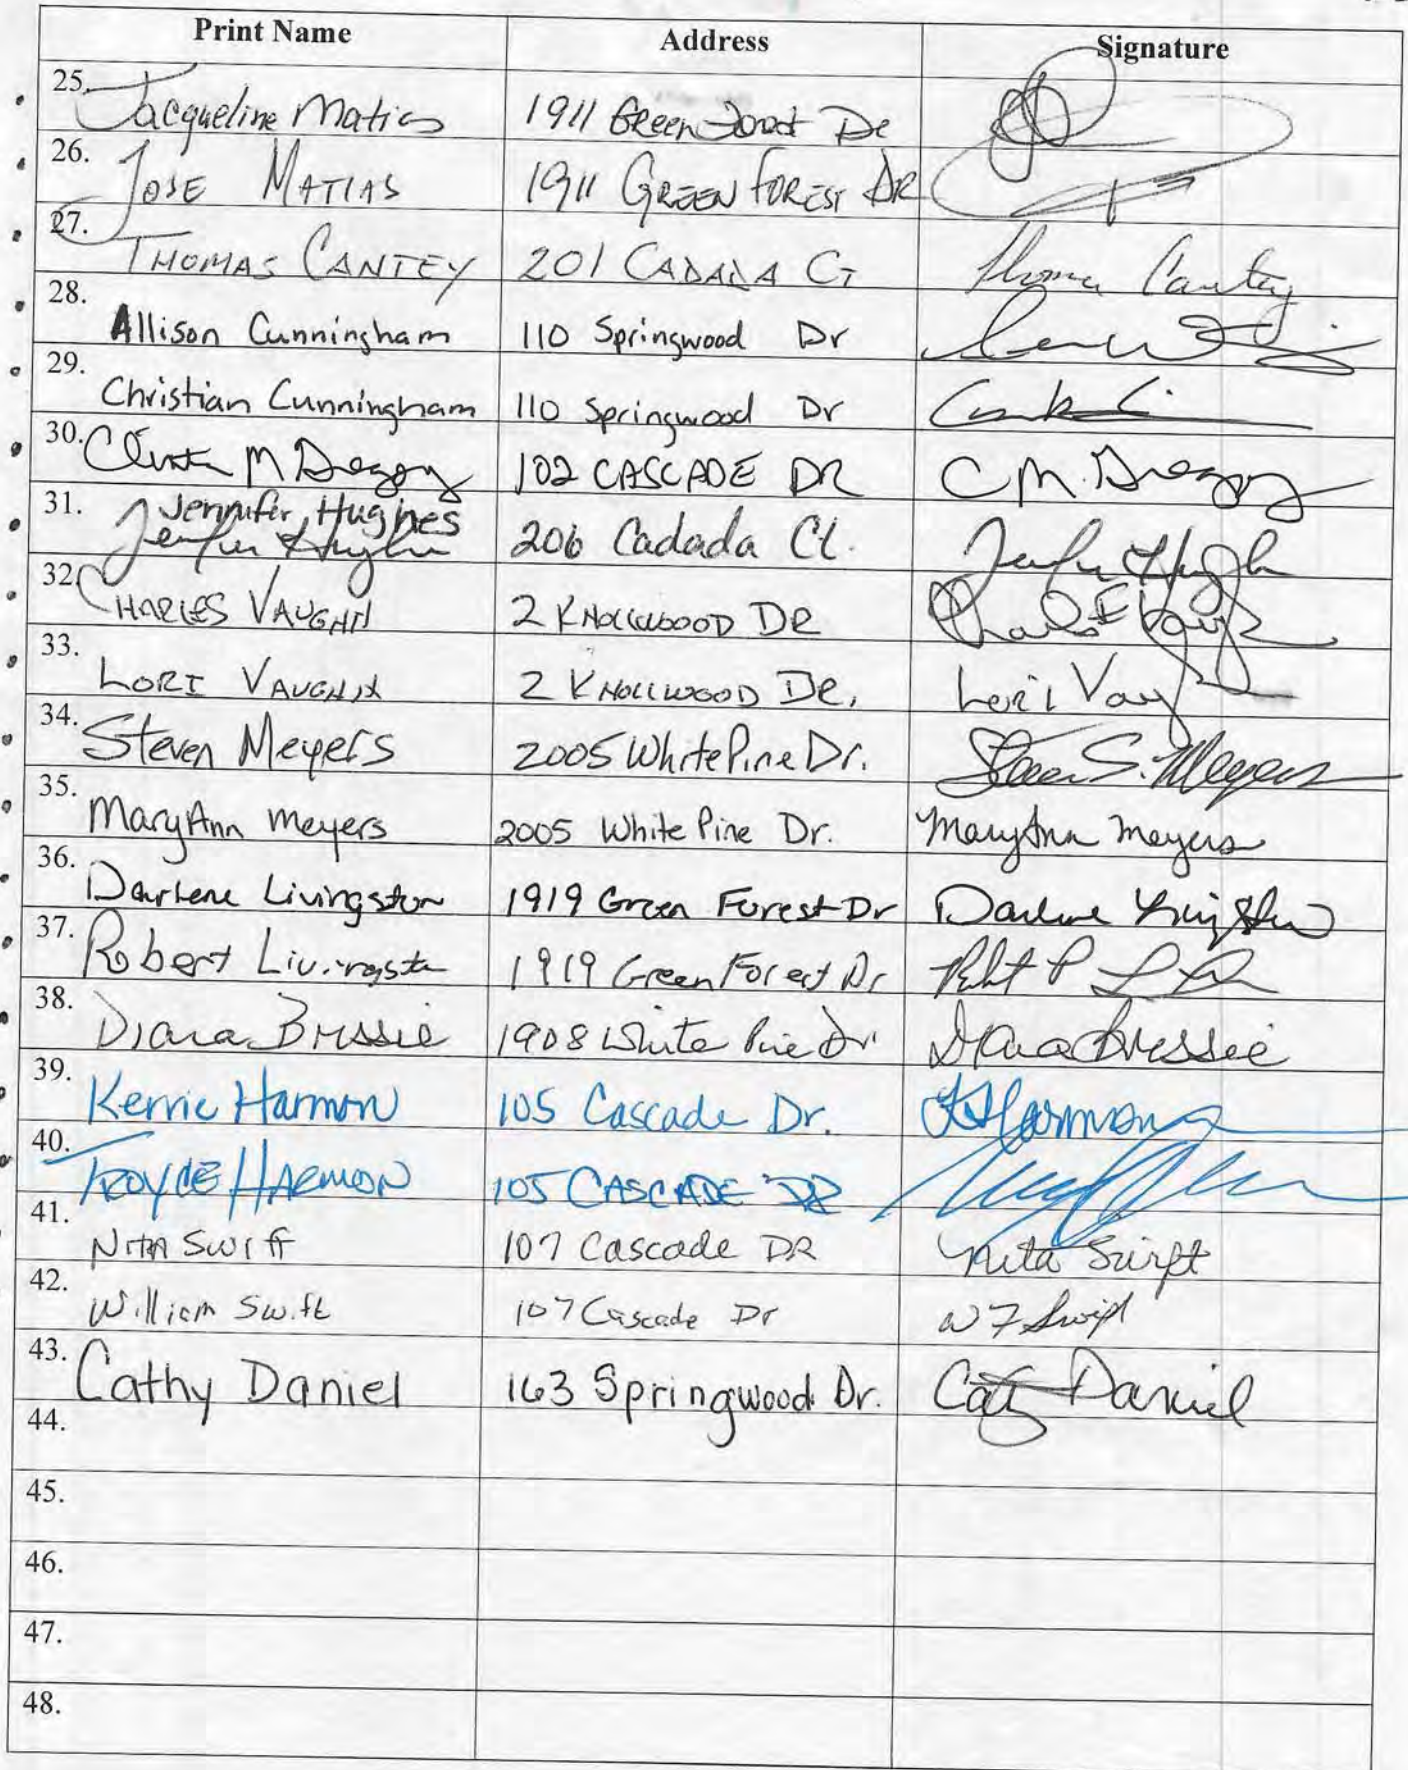 Print Name Address Signature
25. Jacqueline Matias 1911 Green Forest Dr
26. JOSE MATIAS 1911 GREEN FOREST DR
27. THOMAS CANTEY 201 CADADA CT Thomas Cantey
28. Allison Cunningham 110 Springwood Dr
29. Christian Cunningham 110 Springwood Dr
30. M 102 CASCADE DR C M.
31. Jennifer Hughes
Jennifer Hughes 206 Cadada Ct. Jennifer Hughes
32. CHARLES VAUGHN 2 KNOLLWOOD DR Charles E Vaughn
33. LORI VAUGHN 2 KNOLLWOOD DR. Lori Vaughn
34. Steven Meyers 2005 White Pine Dr. Steven S. Meyers
35. MaryAnn Meyers 2005 White Pine Dr. MaryAnn Meyers
36. Darlene Livingston 1919 Green Forest Dr Darlene Livingston
37. Robert Livingston 1919 Green Forest Dr Robert P
38. Diana Bressie 1908 White Pine Dr. Diana Bressie
39. Kerrie Harmon 105 Cascade Dr. K Harmon
40. TROYCE HARMON 105 CASCADE DR
41. NITA Swift 107 Cascade DR Nita Swift
42. William Swift 107 Cascade Dr W F Swift
43. Cathy Daniel 163 Springwood Dr. Cathy Daniel
44.
45.
46.
47.
48.